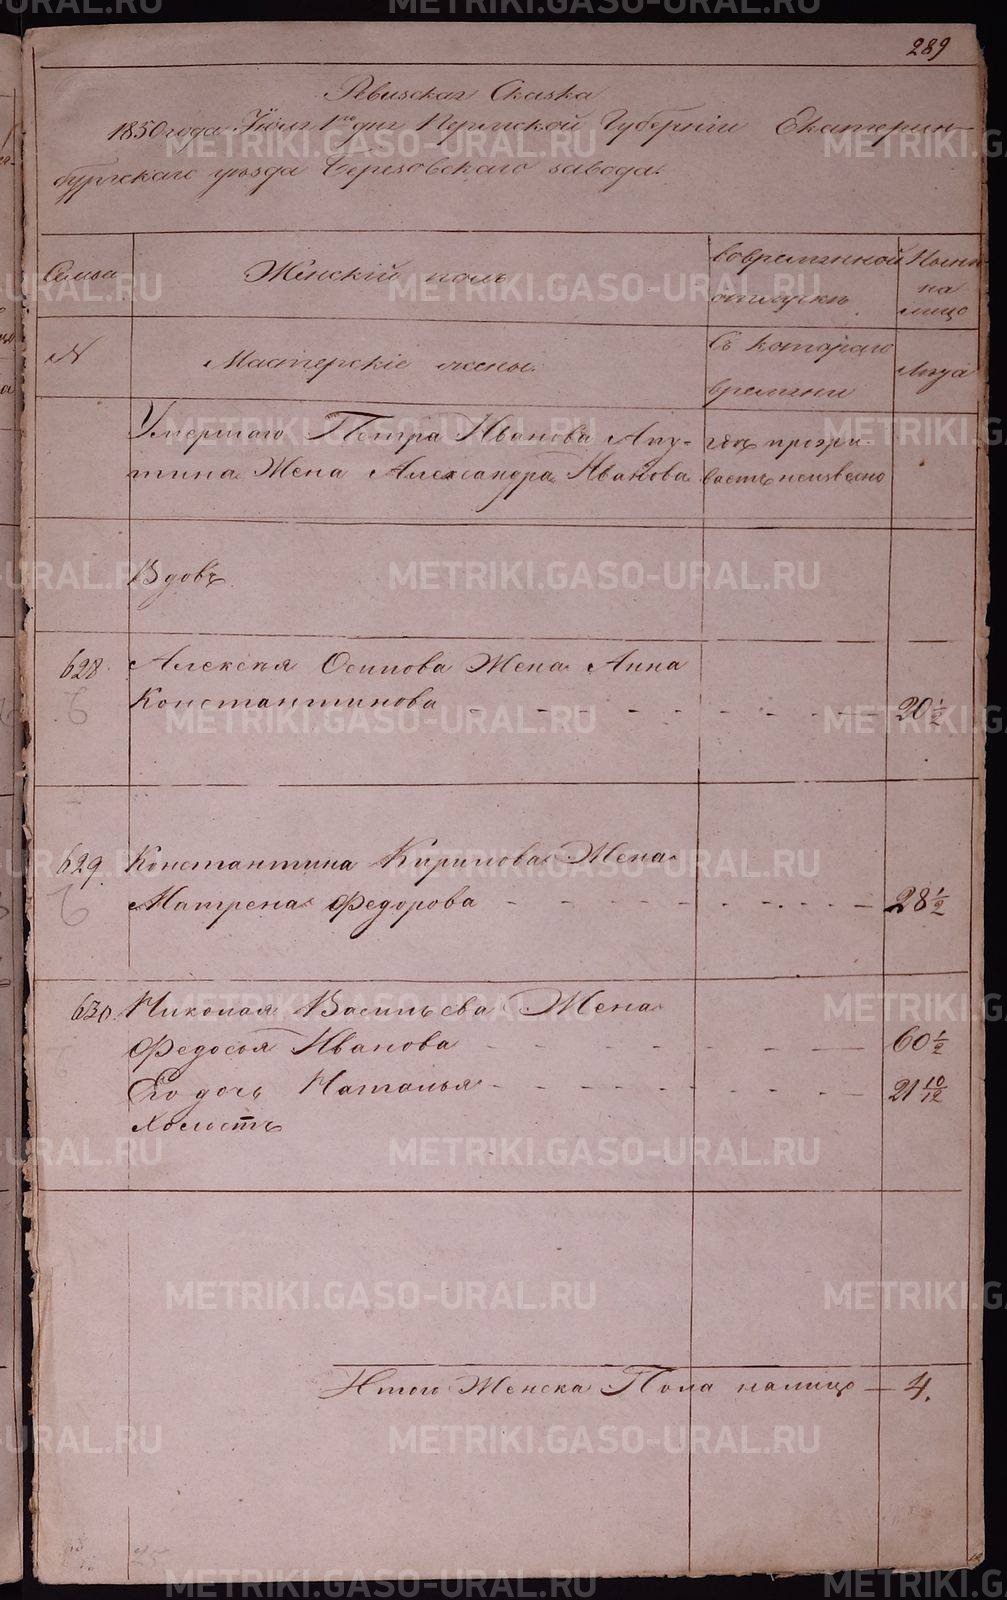 289
Ревизская Сказка
1850 года Июля 1го дня Пермской Губернiи Екатерин-
бургскаго уѣзда Березовскаго завода.
Семьи
Женскiй полъ
Во временной
отлучкѣ
Нынѣ
на
лицо
№
Мастерскiе жены.
Съ котораго
времени
Лѣта
Умершаго Петра Иванова Апу-
тина Жена Александра Иванова
гдѣ прожи-
ваетъ неизвесно
Вдовъ
628. Алексѣя Осипова Жена Анна
Константинова 20 1/2
629. Константина Кирилова Жена
Матрена Федорова 28 1/2
630. Николая Васильева Жена
Федосья Иванова 60 1/2
Его дочь Наталья 21 10/12
Холостъ
Итого Женска Пола налицо — 4.
METRIKI.GASO-URAL.RU